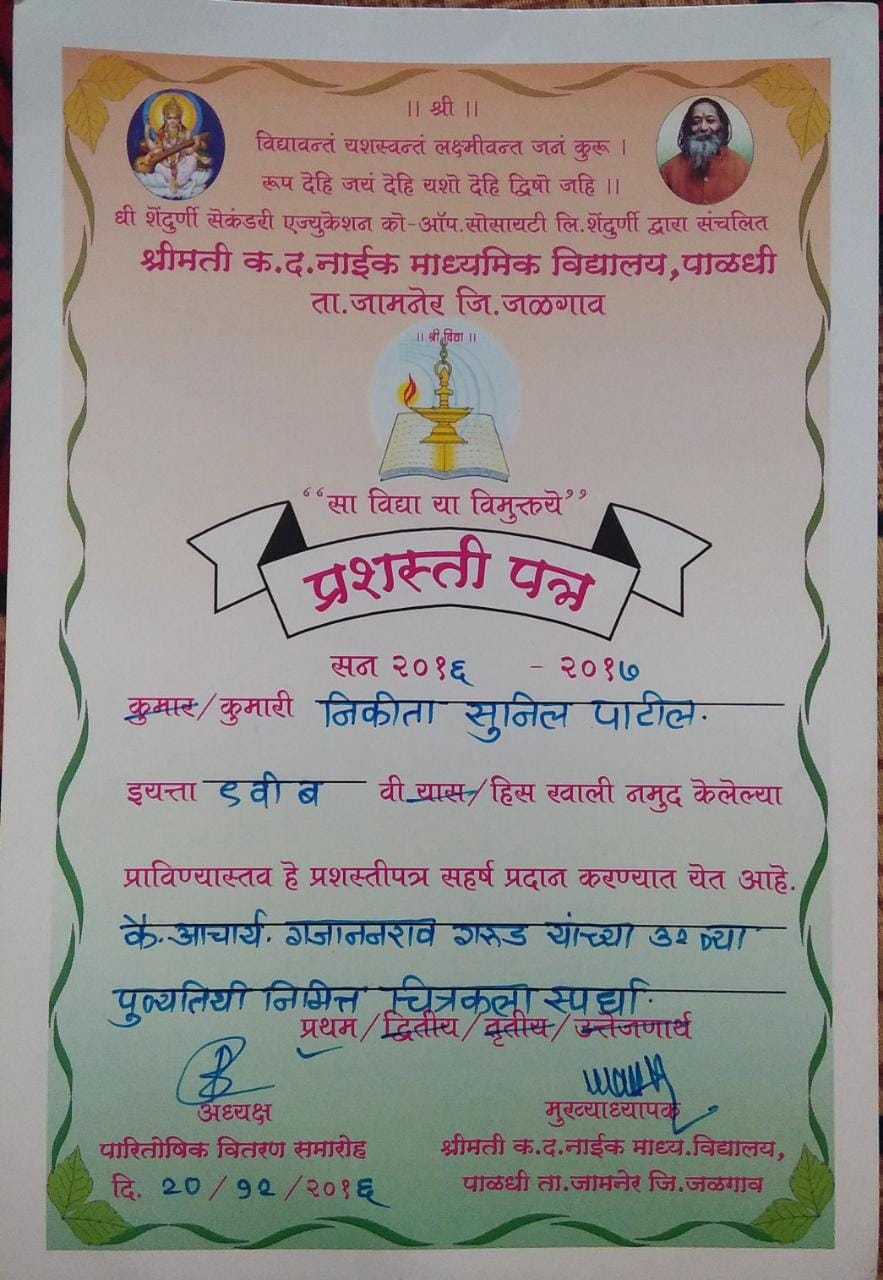 ।। श्री ।।
विद्यावन्तं यशस्वन्तं लक्ष्मीवन्त जनं कुरू ।
रूप देहि जयं देहि यशो देहि द्विषो जहि ।।
धी शेंदुर्णी सेकंडरी एज्युकेशन को-ऑप.सोसायटी लि.शेंदुर्णी द्वारा संचलित
श्रीमती क.द.नाईक माध्यमिक विद्यालय,पाळधी
ता.जामनेर जि.जळगाव
।। श्री विद्या ।।
“सा विद्या या विमुक्तये”
प्रशस्ती पत्र
सन २०१६ - २०१७
कुमार/कुमारी निकीता सुनिल पाटील.
इयत्ता ९ वी ब वी यास/हिस खाली नमुद केलेल्या
प्राविण्यास्तव हे प्रशस्तीपत्र सहर्ष प्रदान करण्यात येत आहे.
कै.आचार्य. गजाननराव गरुड यांच्या व्या
पुण्यतिथी निमित्त चित्रकला स्पर्धा.
प्रथम/द्वितीय/तृतीय/उत्तेजणार्थ
अध्यक्ष
पारितोषिक वितरण समारोह
दि. 20/१२/२०१६
मुख्याध्यापक
श्रीमती क.द.नाईक माध्य.विद्यालय,
पाळधी ता.जामनेर जि.जळगाव